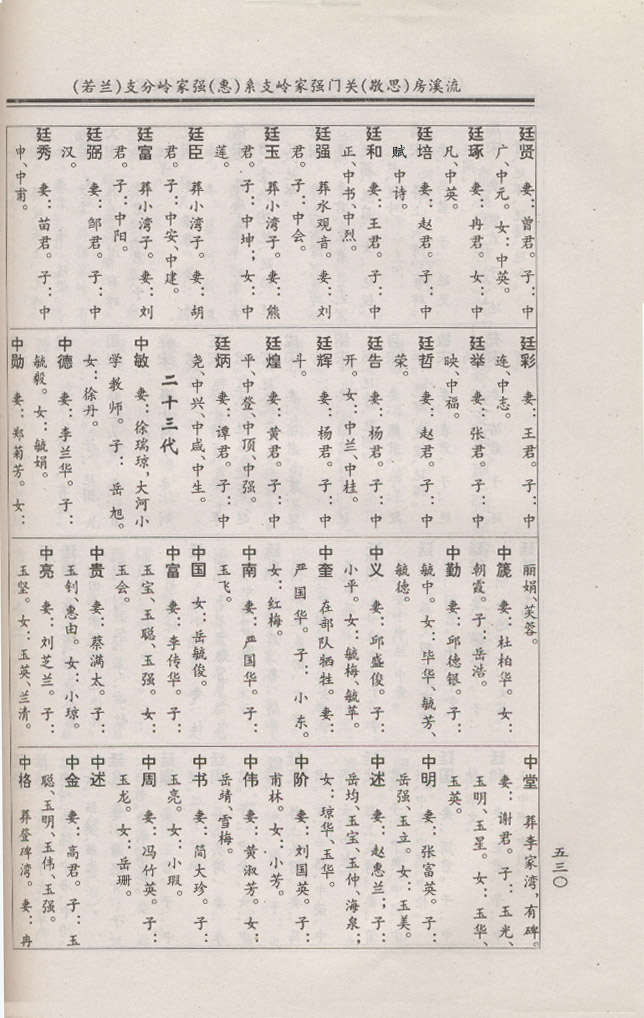 流溪房(敬思)关门强家岭支系(惠)强家岭分支(若兰)
廷贤 妻：曾君。子：中
广、中元。女：中英。
廷琢 妻：冉君。女：中
凡、中英。
廷培 妻：赵君。子：中
赋、中诗。
廷和 妻：王君。子：中
正、中书、中烈。
廷强 葬水观音。妻：刘
君。子：中会。
廷玉 葬小湾子。妻：熊
君。子：中坤；女：中
莲。
廷臣 葬小湾子。妻：胡
君。子：中安、中建。
廷富 葬小湾子。妻：刘
君。子：中阳。
廷弼 妻：邹君。子：中
汉。
廷秀 妻：苗君。子：中
申、中甫。
廷彩 妻：王君。子：中
连、中志。
廷举 妻：张君。子：中
映、中福。
廷哲 妻：赵君。子：中
荣。
廷告 妻：杨君。子：中
开。女：中兰、中桂。
廷辉 妻：杨君。子：中
斗。
廷煌 妻：黄君。子：中
平、中登、中顶、中强。
廷炳 妻：谭君。子：中
尧、中兴、中咸、中生。
二十三代
中敏 妻：徐瑞琼，大河小
学教师。子：岳旭。
女：徐丹。
中德 妻：李兰华。子：
毓毅。女：毓娟。
中勋 妻：郑菊芳。女：
丽娟、芙蓉。
中篪 妻：杜柏华。女：
朝霞。子：岳浩。
中勤 妻：邱德银。子：
毓中。女：毕华、毓芳、
毓德。
中义 妻：邱盛俊。子：
小平。女：毓梅、毓苹。
中奎 在部队牺牲。妻：
严国华。子：小东。
中南 妻：严国华。子：
女：红梅。
玉飞。
中国 女：岳毓俊。
中富 妻：李传华。子：
玉宝、玉聪、玉强。女：
玉会。
中贵 妻：蔡满太。子：
玉钊、惠由。女：小琼。
中亮 妻：刘芝兰。子：
玉坚。女：玉英、兰清。
中堂 葬李家湾，有碑。
妻：谢君。子：玉光、
玉明、玉星。女：玉华、
玉英。
中明 妻：张富英。子：
岳强、玉立。女：玉美。
中述 妻：赵惠兰；子：
岳均、玉宝、玉仲、海泉；
女：琼华、玉华。
中阶 妻：刘国英。子：
甫林。女：小芳。
中伟 妻：黄淑芳。女：
岳靖、雪梅。
中书 妻：简大珍。子：
玉亮。女：小瑕。
中周 妻：冯竹英。子：
玉龙。女：岳珊。
中述
中金 妻：高君。子：玉
聪、玉明、玉伟、玉强。
中格 葬登碑湾。妻：冉
五三〇